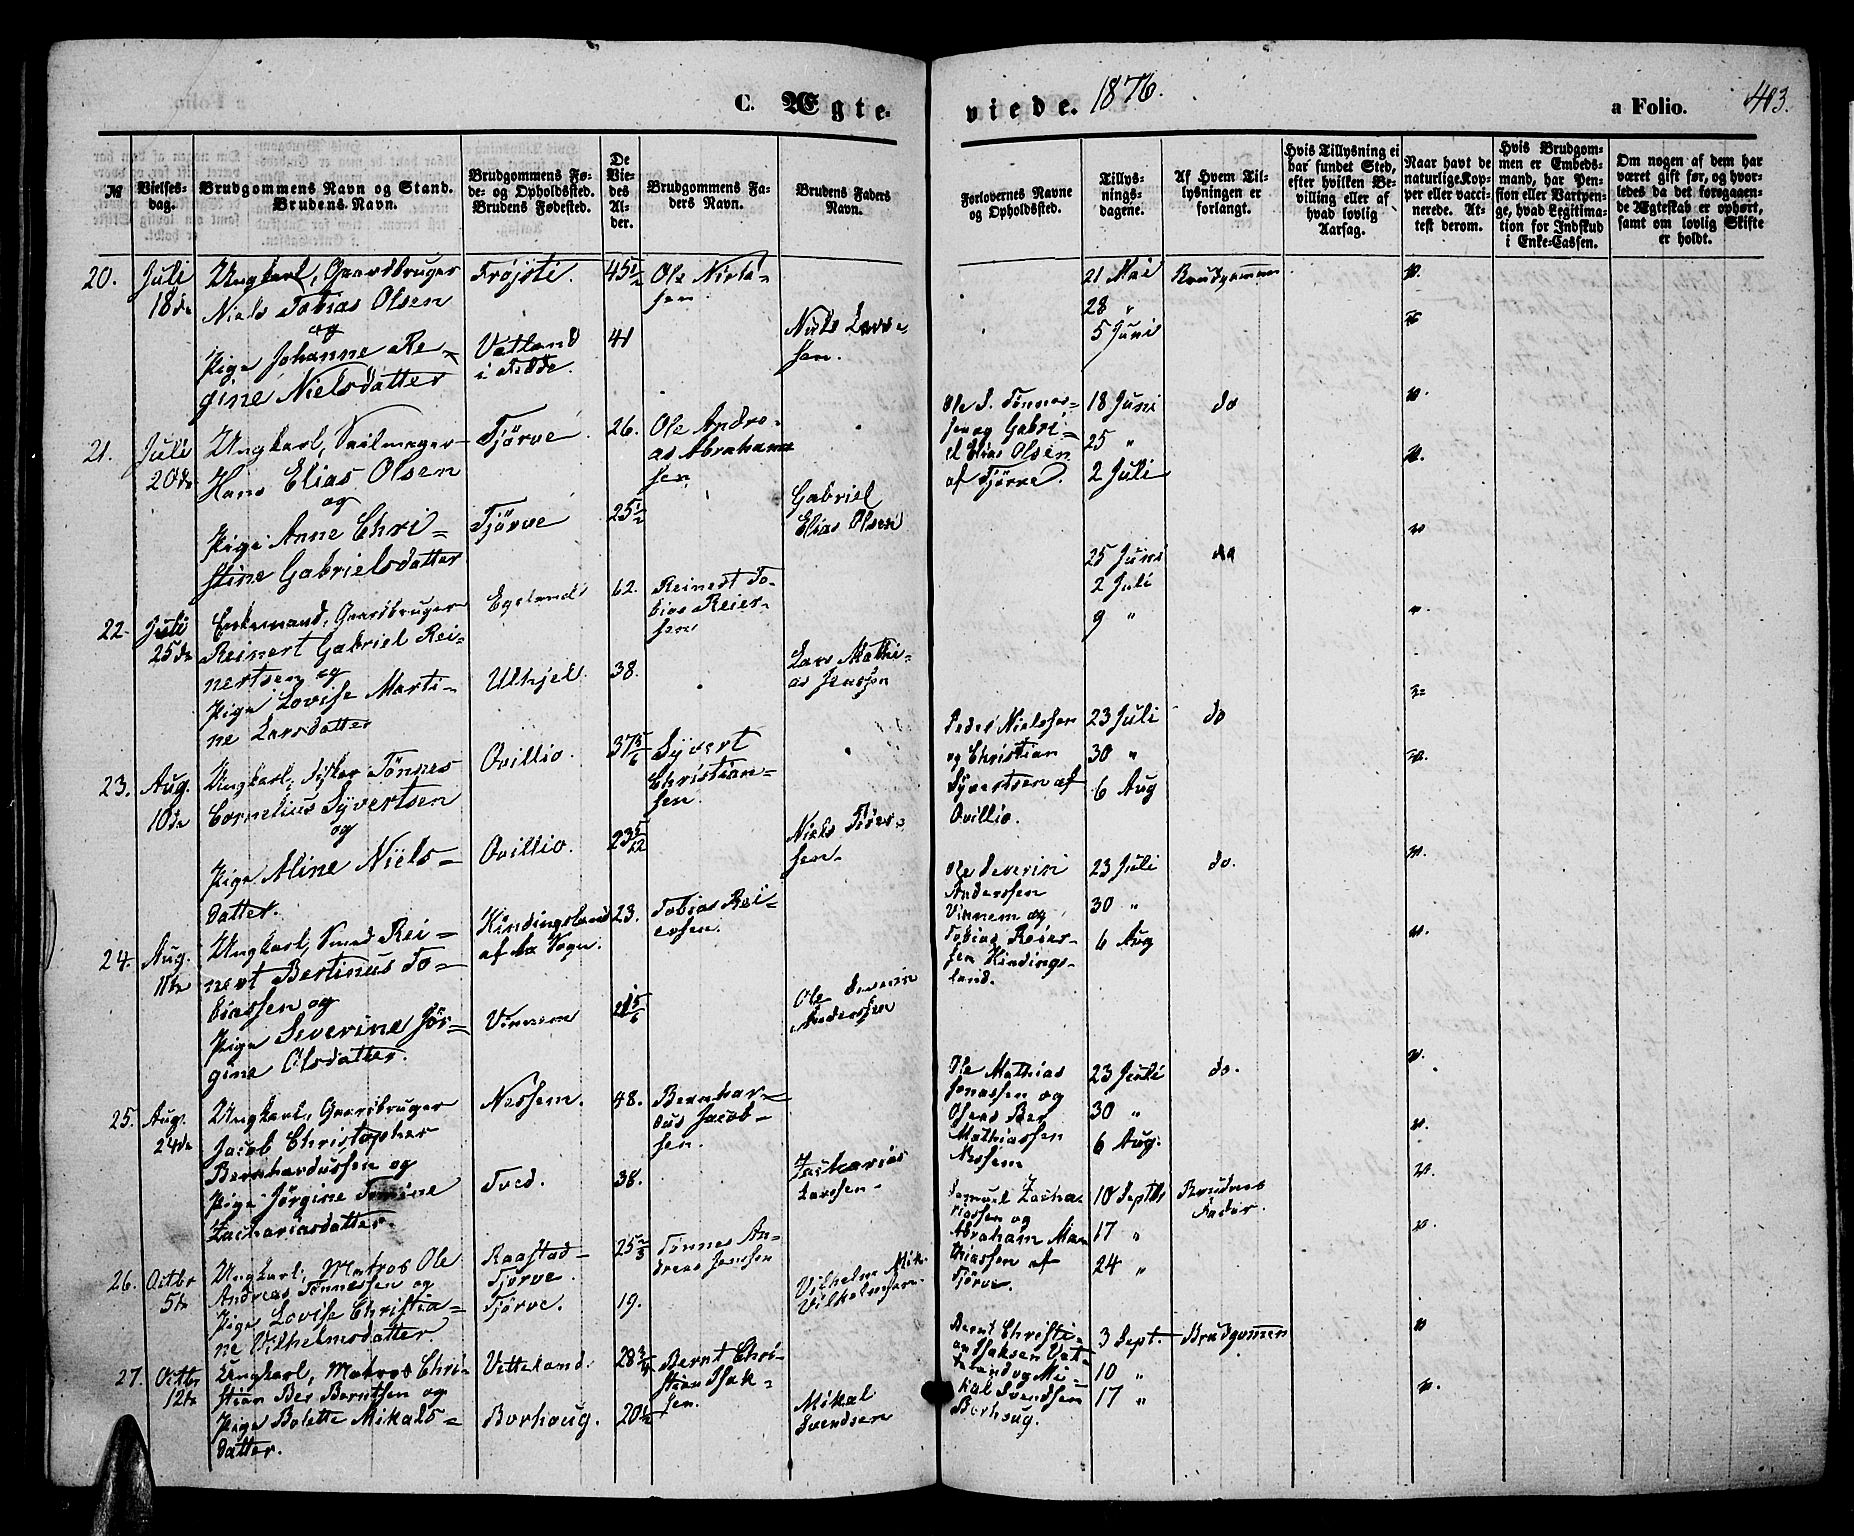 C. Ægte viede. 1876. a Folio. 403.
№
Vielses-
dag.
Brudgommens Navn og Stand.
Brudens Navn.
Brudgommens Fø-
de- og Opholdssted.
Brudens Fødested.
De
Vie-
des
Al-
der.
Brudgommens Fa-
ders Navn.
Brudens Faders
Navn.
Forlovernes Navne
og Opholdssted.
Tillys-
nings-
dagene.
Af Hvem Til-
lysningen er
forlangt.
Hvis Tillysning ei
har fundet Sted,
efter hvilken Be-
villing eller af
hvad lovlig
Aarsag.
Naar havt de
naturlige Kop-
per eller vacci-
nerede. At-
test derom.
Hvis Brudgom-
men er Embeds-
mand, har Pen-
sion eller Vartpen-
ge, hvad Legitima-
tion for Indskud
i Enke-Cassen.
Om nogen af dem har
været gift før, og hvor-
ledes da det foregaaen-
de Ægteskab er ophørt,
samt om lovlig Skifte
er holdt.
20.
Juli
18de
Ungkarl, Gaardbruger
Niels Tobias Olsen
og
Pige Johanne Re-
gine Nielsdatter
Trøjsti
Vatland
i Fedde.
45 1/2
41
Ole Niels-
sen.
Niels Lars-
sen.
21 Mai
28 "
5 Juni
Brudgommen
21.
Juli
20de
Ungkarl, Seilmager
Hans Elias Olsen
og
Pige Anne Chri-
stine Gabrielsdatter
Tjørve
Tjørve
26.
25 1/2
Ole Andre-
as Abraham-
sen
Gabriel
Elias Olsen
Ole S. Tønnes-
sen og Gabri-
el Elias Olsen
af Tjørve.
18 Juni
25 "
2 Juli
do
22.
Juli
25de
Enkemand, Gaardbruger
Reinert Gabriel Rei-
nertsen og
Pige Lovise Marti-
ne Larsdatter
Egeland
Ulhjel.
62.
38.
Reinert To-
bias Reier-
sen
Lars Mathi-
as Jenssen
25 Juni
2 Juli
9 "
do
23.
Aug.
10de
Ungkarl, Fisker Tønnes
Cornelius Syvertsen
og
Pige Aline Niels-
datter.
Ovillio.
Ovillio.
37 5/6
23 5/12
Syvert
Christian-
sen.
Niels Peder-
sen.
Peder Nielssen
og Christian
Syvertsen af
Ovillio.
23 Juli
30 "
6 Aug
do
24.
Aug.
11te
Ungkarl, Smed Rei-
nert Bertinus To-
biassen og
Pige Severine Jør-
gine Olsdatter.
Kindingsland
af Aa Sogn.
Vinnem
23.
21 5/6
Tobias Rei-
ersen.
Ole Severin
Anderssen
Ole Severin
Anderssen
Vinnem og
Tobias Reier-
sen Kindings-
land.
23 Juli
30 "
6 Aug
do.
25.
Aug.
24de
Ungkarl, Gaardbruger
Jacob Christopher
Bernhardussen og
Pige Jørgine Tomine
Zachariasdatter.
Nessem.
Tved.
48.
38.
Bernhar-
dus Jacob-
sen.
Zacharias
Larssen.
Ole Mathias
Jonassen og
Oseas Ber
Mathiassen
Nessem
23 Juli
30 "
6 Aug.
do.
26.
Octbr
5te
Ungkarl, Matros Ole
Andreas Tønnessen og
Pige Lovise Christia-
ne Vilhelmsdatter.
Raastad-
Tjørve.
Tjørve.
25 2/3
19.
Tønnes An-
dreas Jonssen
Vilhelm Mik.
Vilhelmsen.
Samuel Zacha-
riassen og
Abraham Mat
thiassen af
Tjørve.
10 Septbr
17 "
24 "
Brudens
Fader.
27.
Octbr
12te
Ungkarl, Matros Chri-
stian Ber Berntsen og
Pige Bolette Mikals-
datter.
Vetteland.
Borhaug.
28 3/4
20 1/2
Bernt Chri-
stian Isak-
sen.
Mikal
Svendsen
Bernt Christi-
an Isaksen Vet-
teland og Mi-
kal Svendsen
Borhoug.
3 Sept.
10 "
17 "
Brudgommen